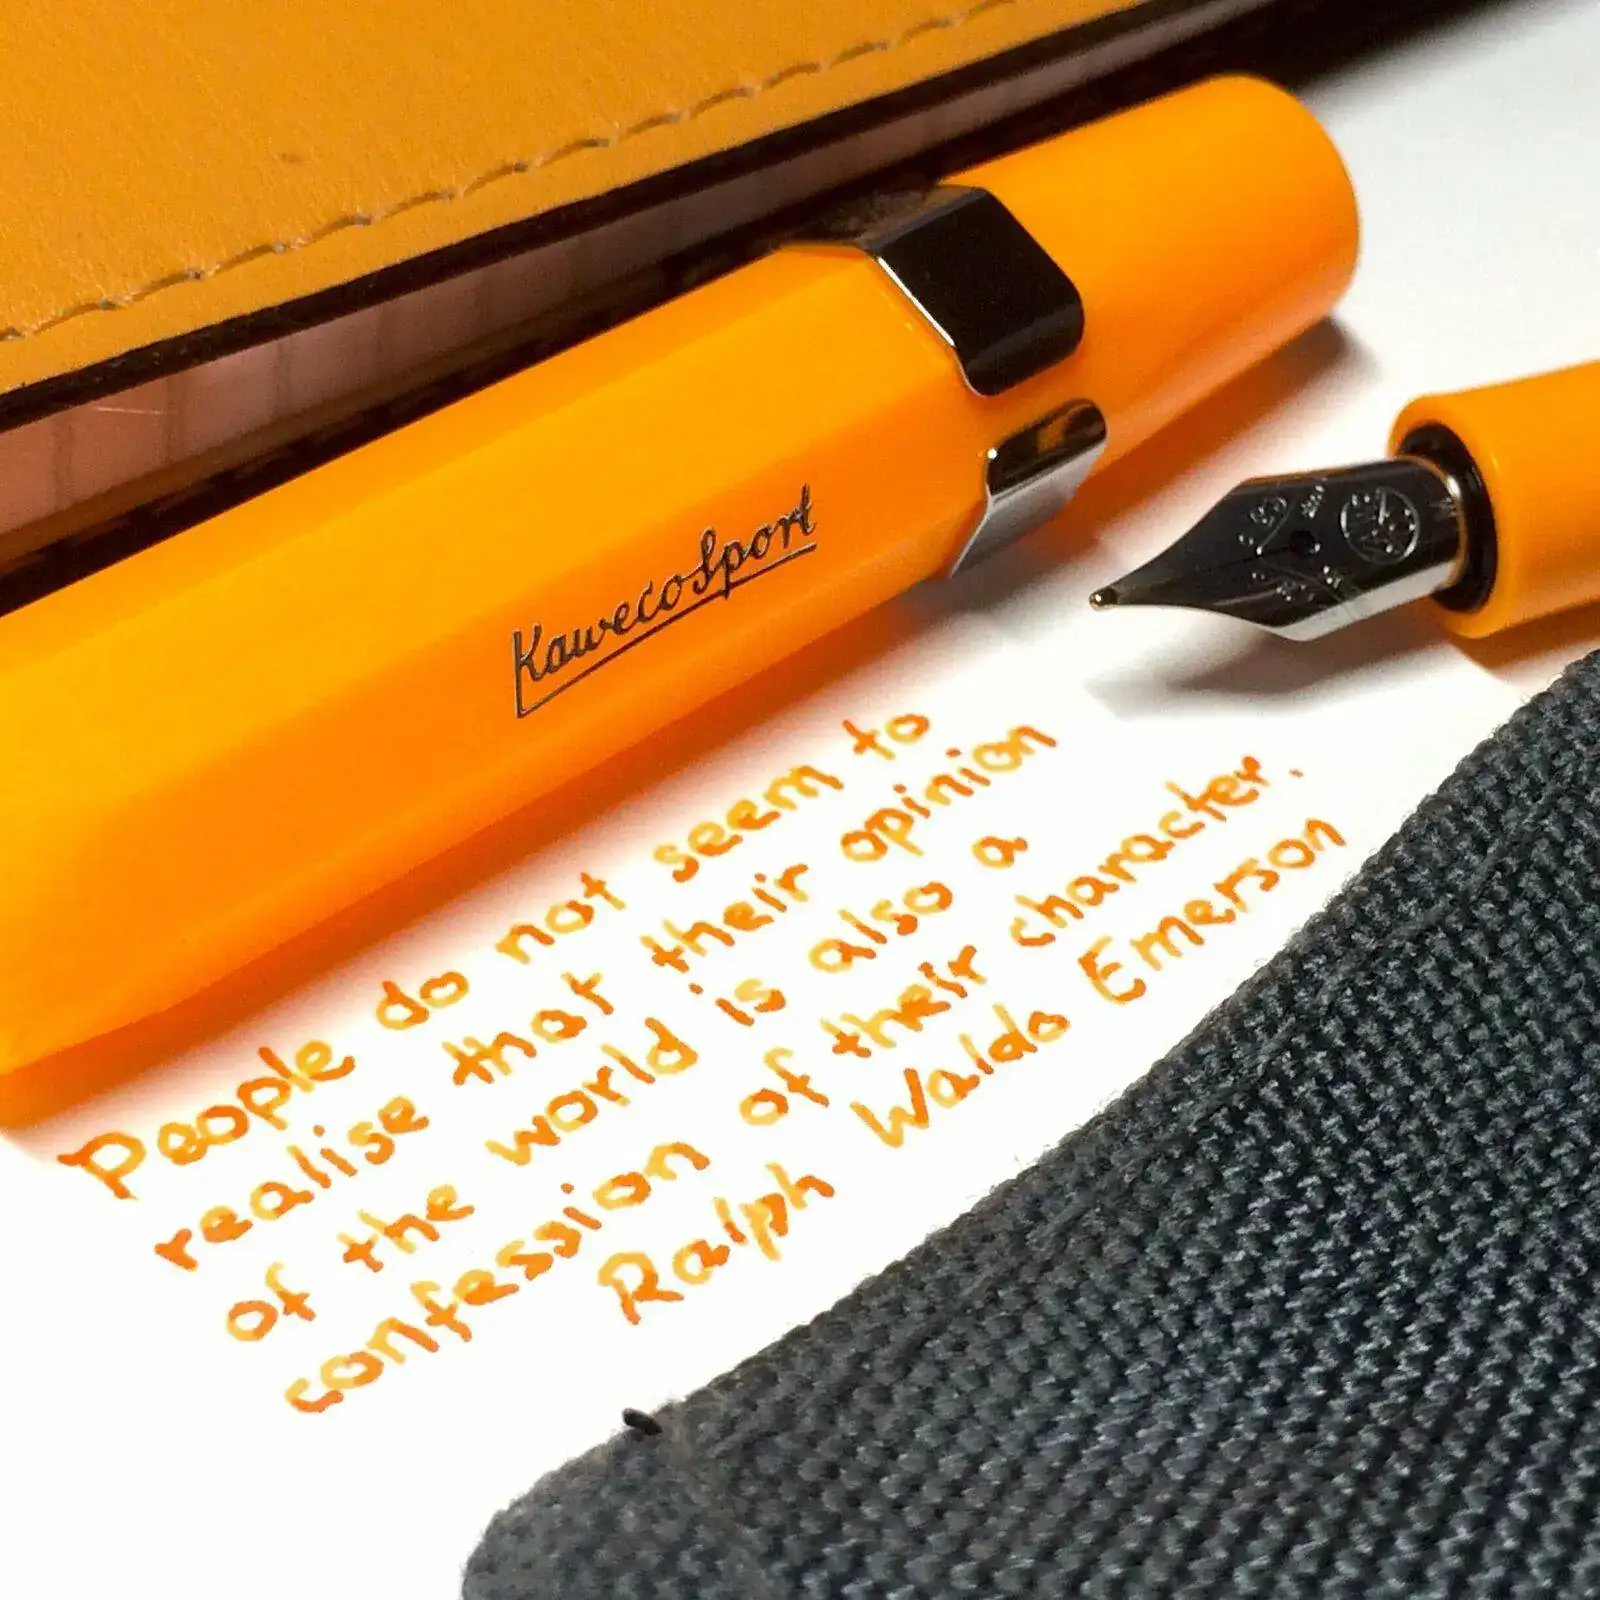 Kaweco Sport
People do not seem to
realise that their opinion
of the world is also a
confession of their character.
Ralph Waldo Emerson